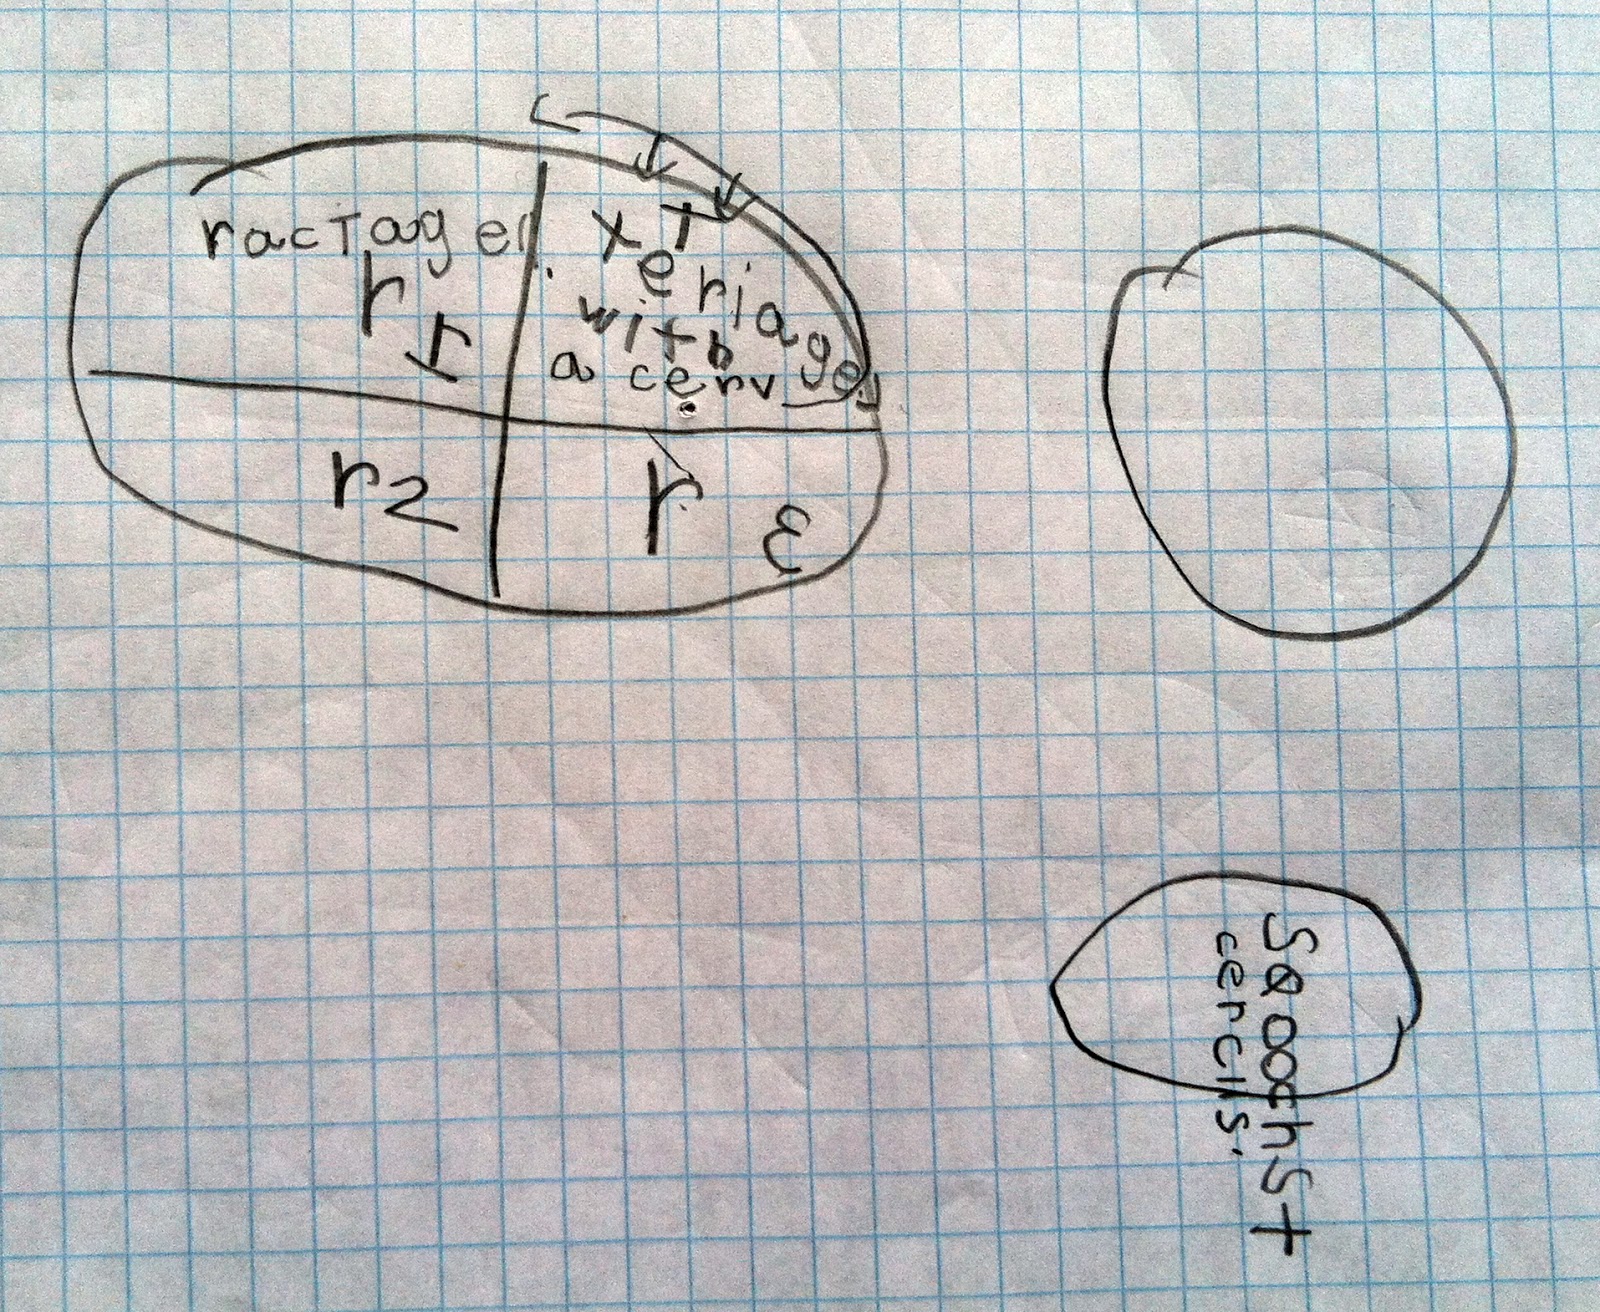 ractagel.
r 1
xTeriage
with
a cerv
r2
r 3
Sqooochst
cercils.